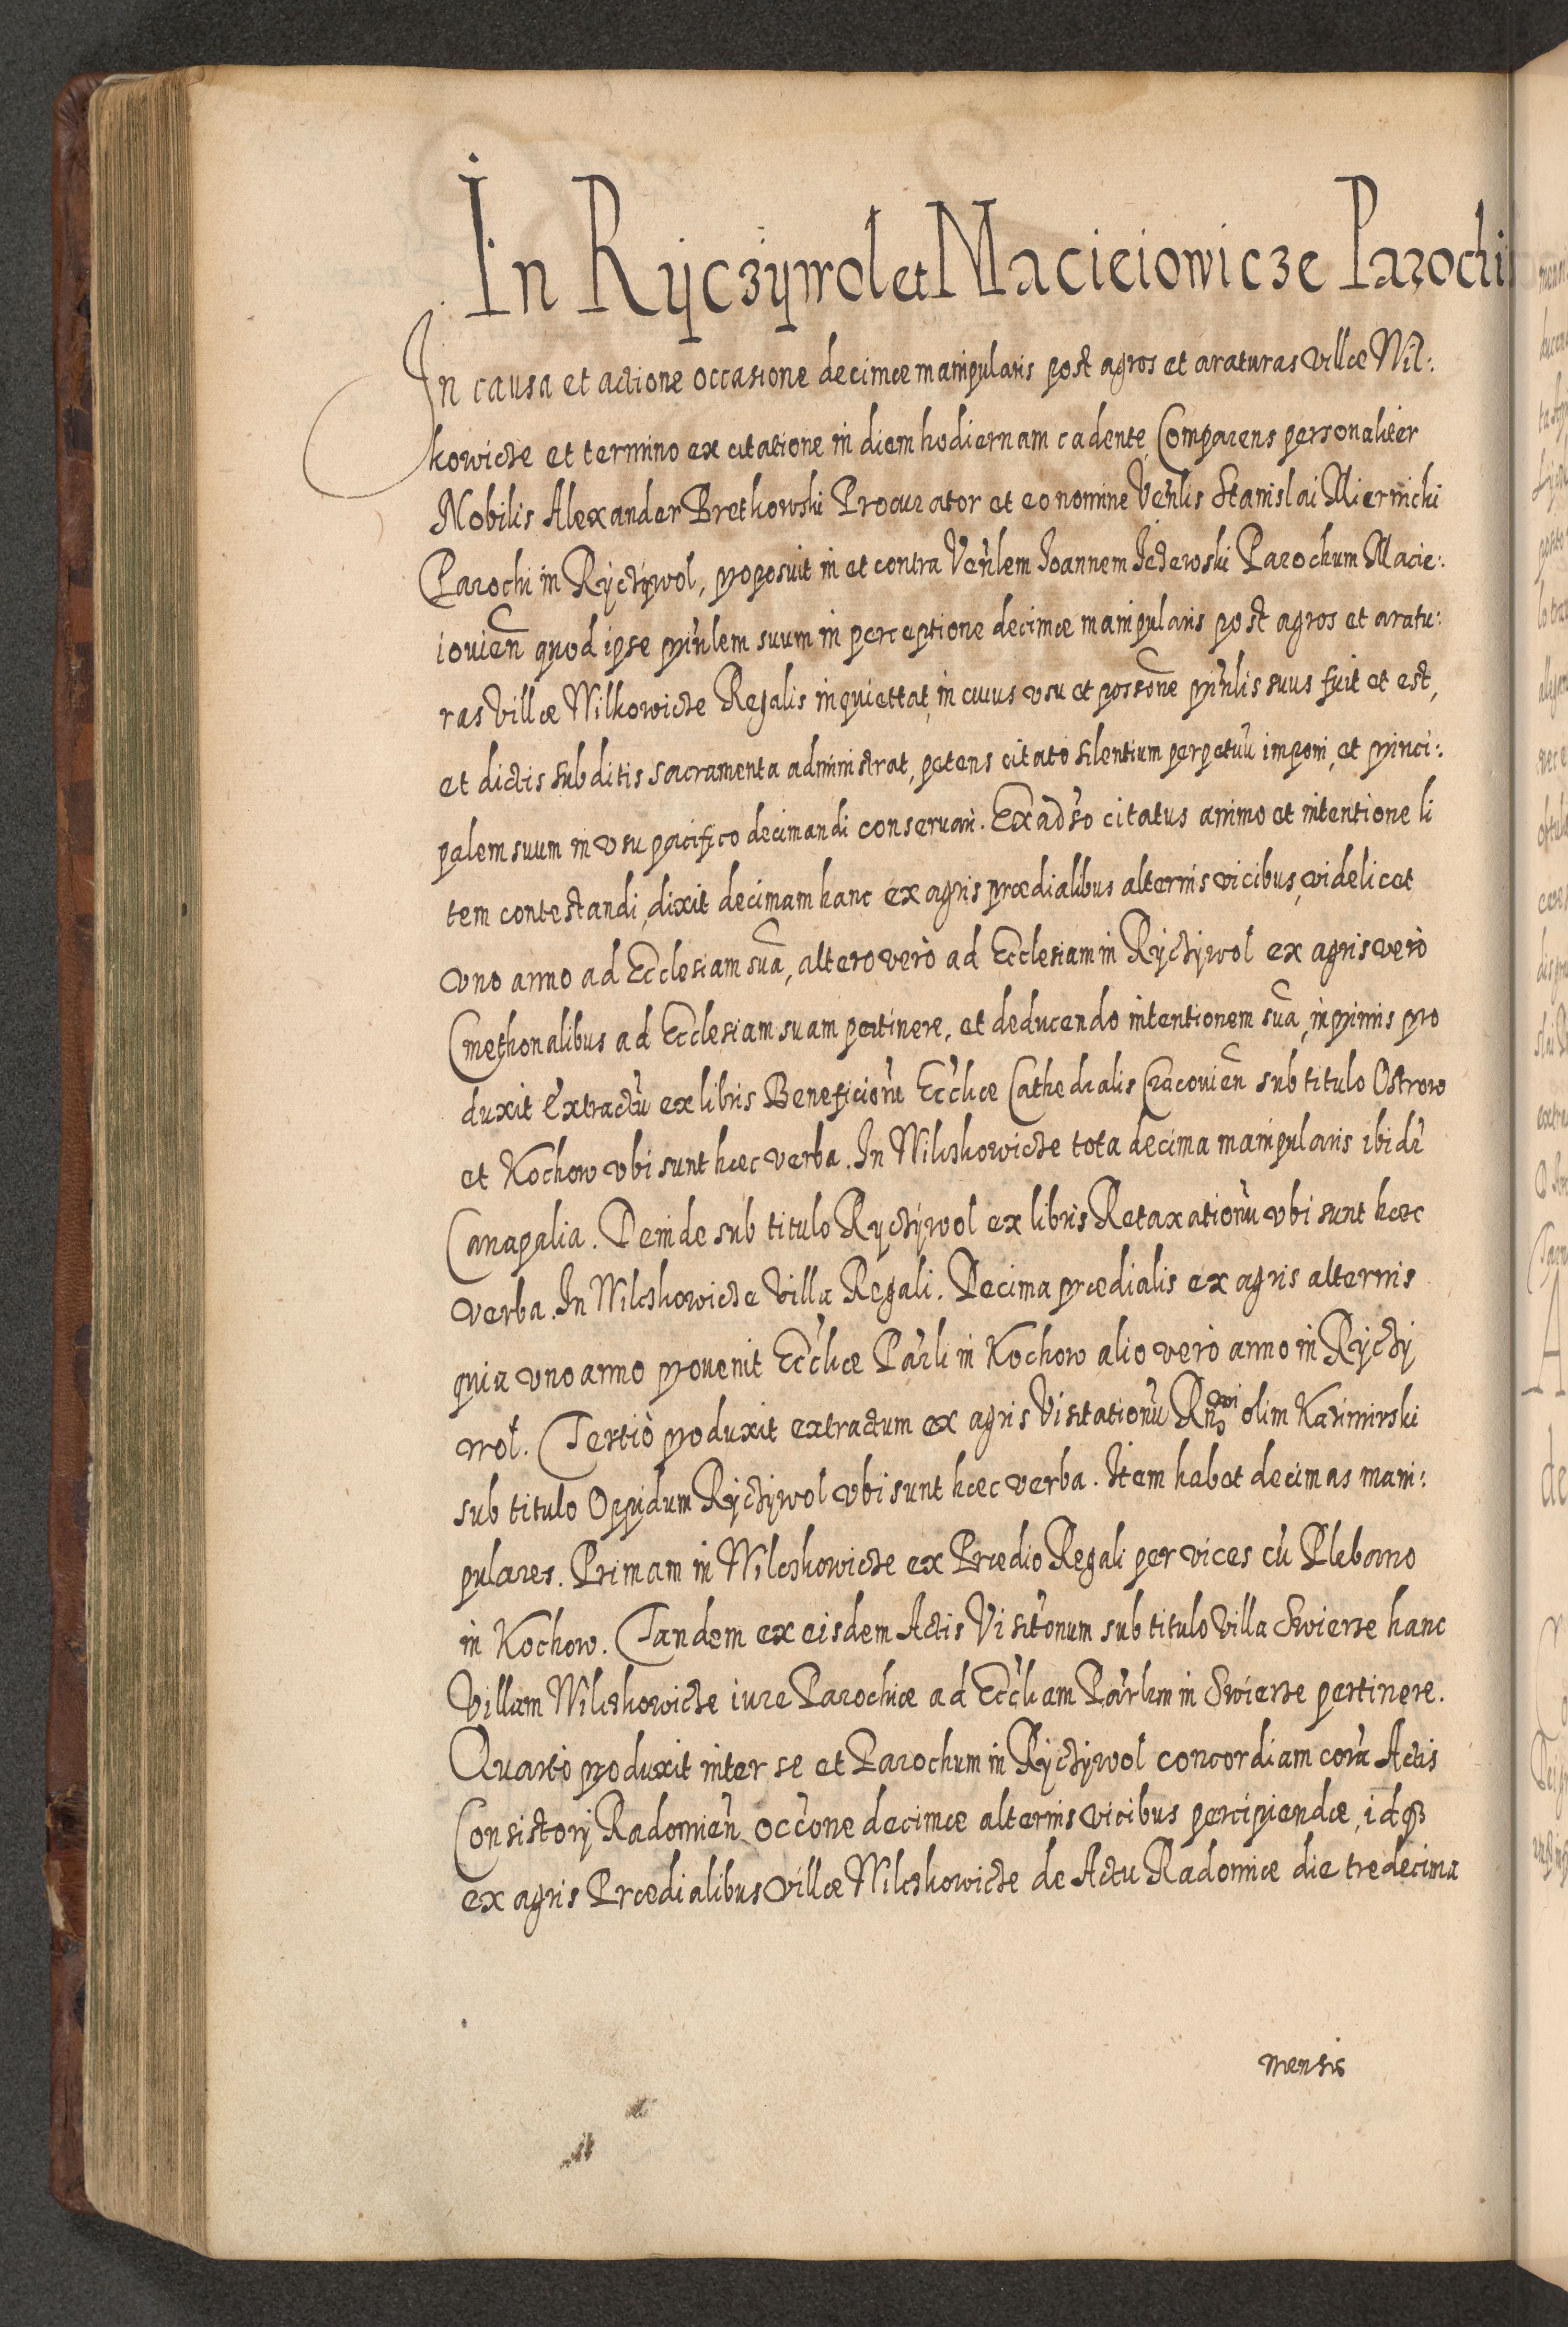 In Ryczÿwol et Macieiowicze Parochi
In causa et actione occasione decimæ manipularis post agros et araturas villæ Wil:
kowicze et termino ex citatione in diem hodiernam cadente, Comparens personaliter
Nobilis Alexander Bretkowski Procurator et eo nomine Venlis Stanislai Miernichi
Parochi in Ryczÿwol, proposuit in et contra Venlem Ioannem Iezewski Parochum Macie:
iouien quod ipse prinlem suum in perceptione decimæ manipularis post agros et aratu:
ras villæ Wilkowicze Regalis inquiettat, in cuius vsu et possone prinlis suus fuit et est,
et dictis subditis sacramenta administrat, petens citato silentium perpetuũ imponi, et princi:
palem suum in vsu pacifico decimandi conseruari. Ex adso citatus animo et intentione li
tem contestandi, dixit decimam hanc ex agris prædialibus alternis vicibus, videlicet
vno anno ad Ecclesiam suã, altero verò ad Ecclesiam in Ryczÿwol ex agris verò
Cmethonalibus ad Ecclesiam suam pertinere, et deducendo intentionem suã, inprimis pro
duxit Extractũ ex libris Beneficiorũ Ecclicæ Cathedralis Cracouien sub titulo Ostrow
et Kochow vbi sunt hæc verba. In Wilczkowicze tota decima manipularis ibidẽ
Canapalia. Deinde sub titulo Ryczÿwol ex libris Retaxationũ vbi sunt hæc
verba. In Wilczkowicze Villa Regali. Decima prædialis ex agris alternis
quia vno anno prouenit Eccliæ Parli in Kochow alio verò anno in Ryczÿ
wol. Tertiò produxit extractum ex agris Visitationũ Rndi olim Kazimirski
sub titulo Oppidum Ryczÿwol vbi sunt hæc verba. Item habet decimas mani:
pulares. Primam in Wilczkowicze ex Prædio Regali per vices cũ Plebano
in Kochow. Tandem ex eisdem Actis Visitonum sub titulo Villa Swierze hanc
Villam Wilczkowicze iure Parochiæ ad Eccliam Parlem in Swierze pertinere.
Quartò produxit inter se et Parochum in Ryczÿwol concordiam corã Actis
Consistorij Radomien occone decimæ alternis vicibus percipiendæ, idq3
ex agris Prædialibus villæ Wilczkowicze de Actu Radomiæ die tredecima
mensis